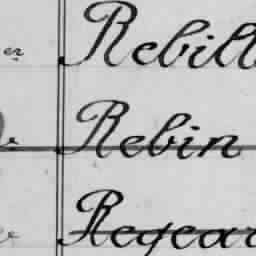 er Rebill
Rebin
Regear